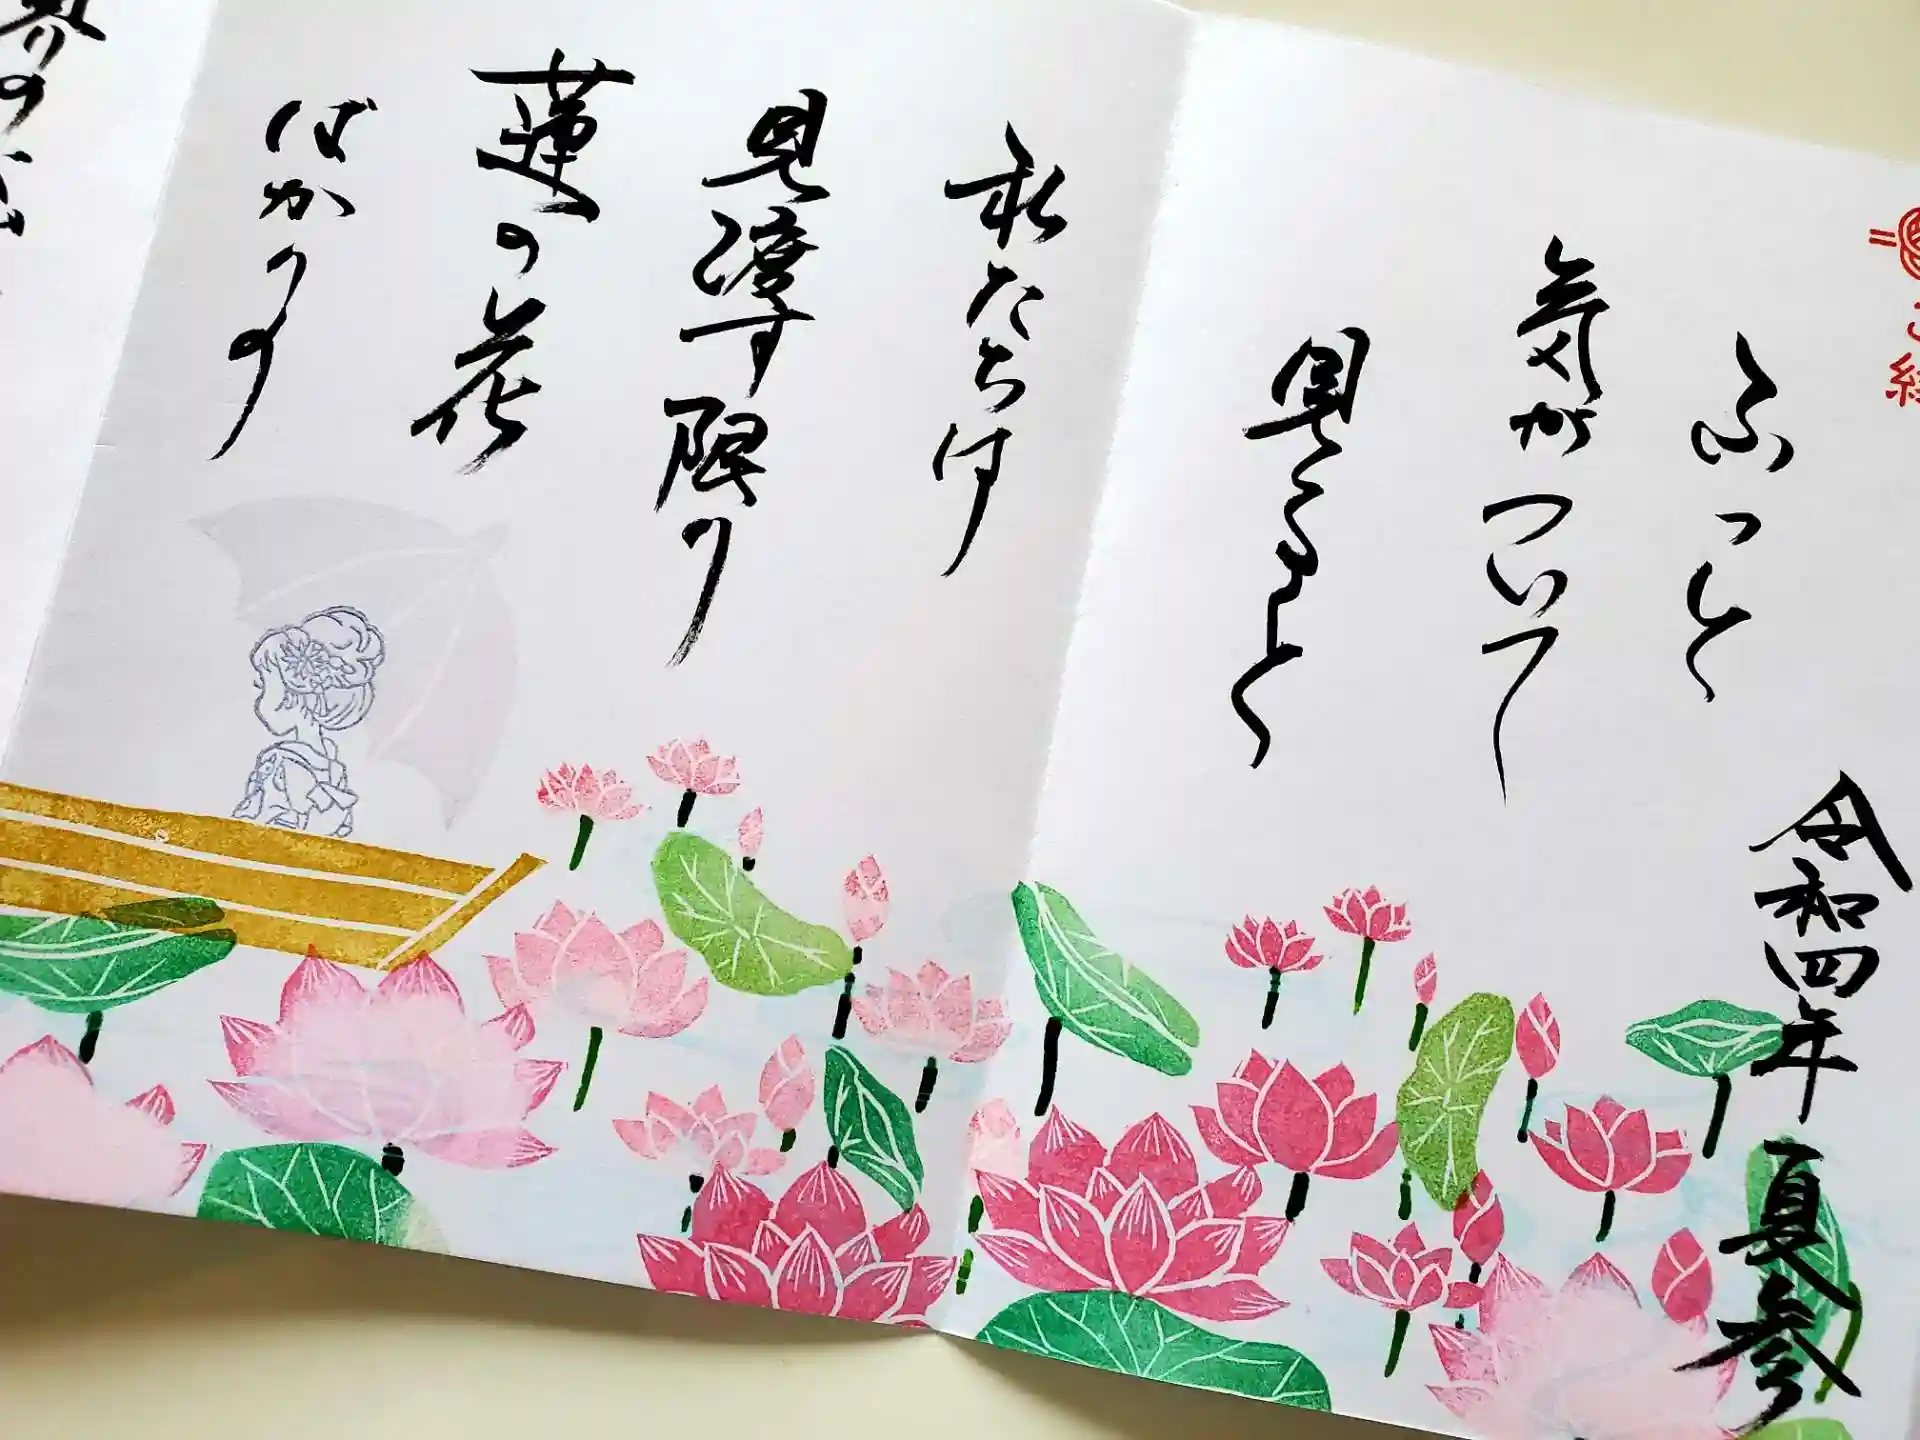 ふっと
気がついて
見ると
令和四年 夏参
私たちは
見渡す限り
蓮の花
ばかりの
界の